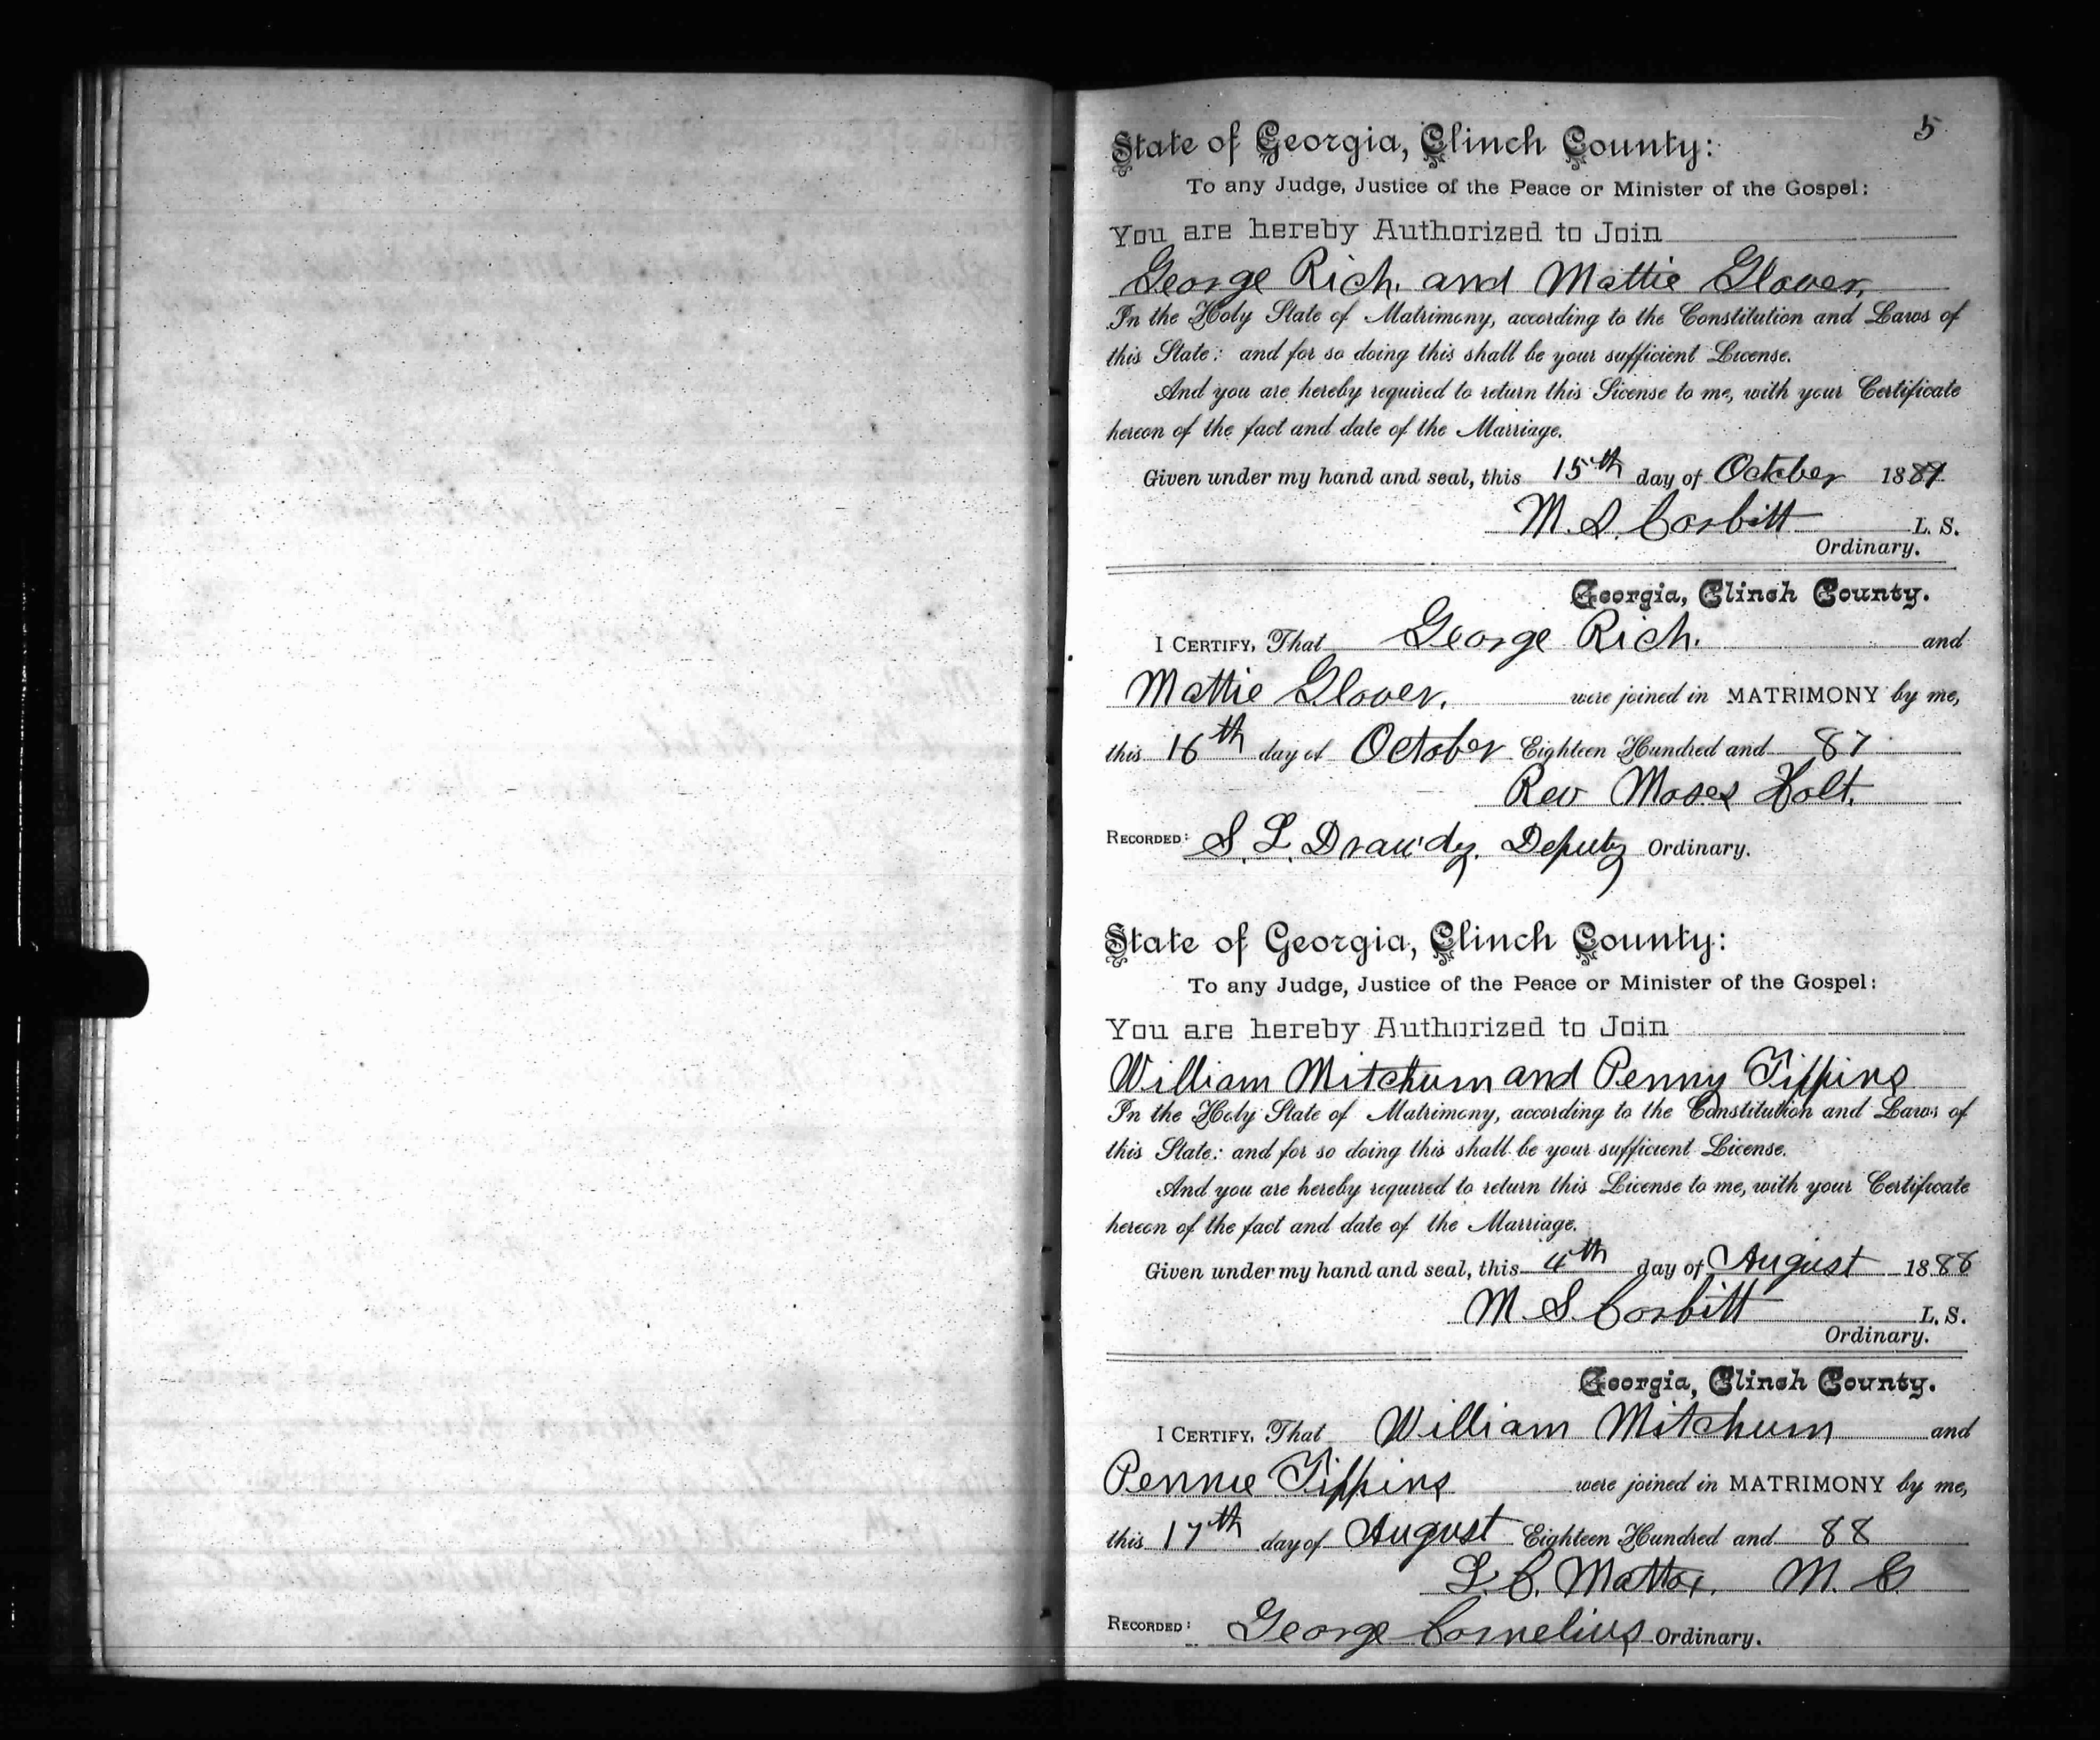 5
State of Georgia, Clinch County:
To any Judge, Justice of the Peace or Minister of the Gospel:
You are hereby Authorized to Join
George Rich. and Mattie Glover,
In the Holy State of Matrimony, according to the Constitution and Laws of
this State: and for so doing this shall be your sufficient License.
And you are hereby required to return this License to me, with your Certificate
hereon of the fact and date of the Marriage.
Given under my hand and seal, this 15th day of October 1887
M. S. Corbitt L. S.
Ordinary.
Georgia, Clinch County.
I CERTIFY, That George Rich. and
Mattie Glover, were joined in MATRIMONY by me,
this 16th day of October Eighteen Hundred and 87
Rev Moses Holt.
RECORDED: S. L. Drawdy. Deputy Ordinary.
State of Georgia, Clinch County:
To any Judge, Justice of the Peace or Minister of the Gospel:
You are hereby Authorized to Join
William Mitchum and Penny Tippins
In the Holy State of Matrimony, according to the Constitution and Laws of
this State: and for so doing this shall be your sufficient License.
And you are hereby required to return this License to me, with your Certificate
hereon of the fact and date of the Marriage.
Given under my hand and seal, this 4th day of August 1888
M S. Corbitt L. S.
Ordinary.
Georgia, Clinch County.
I CERTIFY, That William Mitchum and
Pennie Tippins were joined in MATRIMONY by me,
this 17th day of August Eighteen Hundred and 88
L. C. Mattox. M. G.
RECORDED: George Cornelius Ordinary.